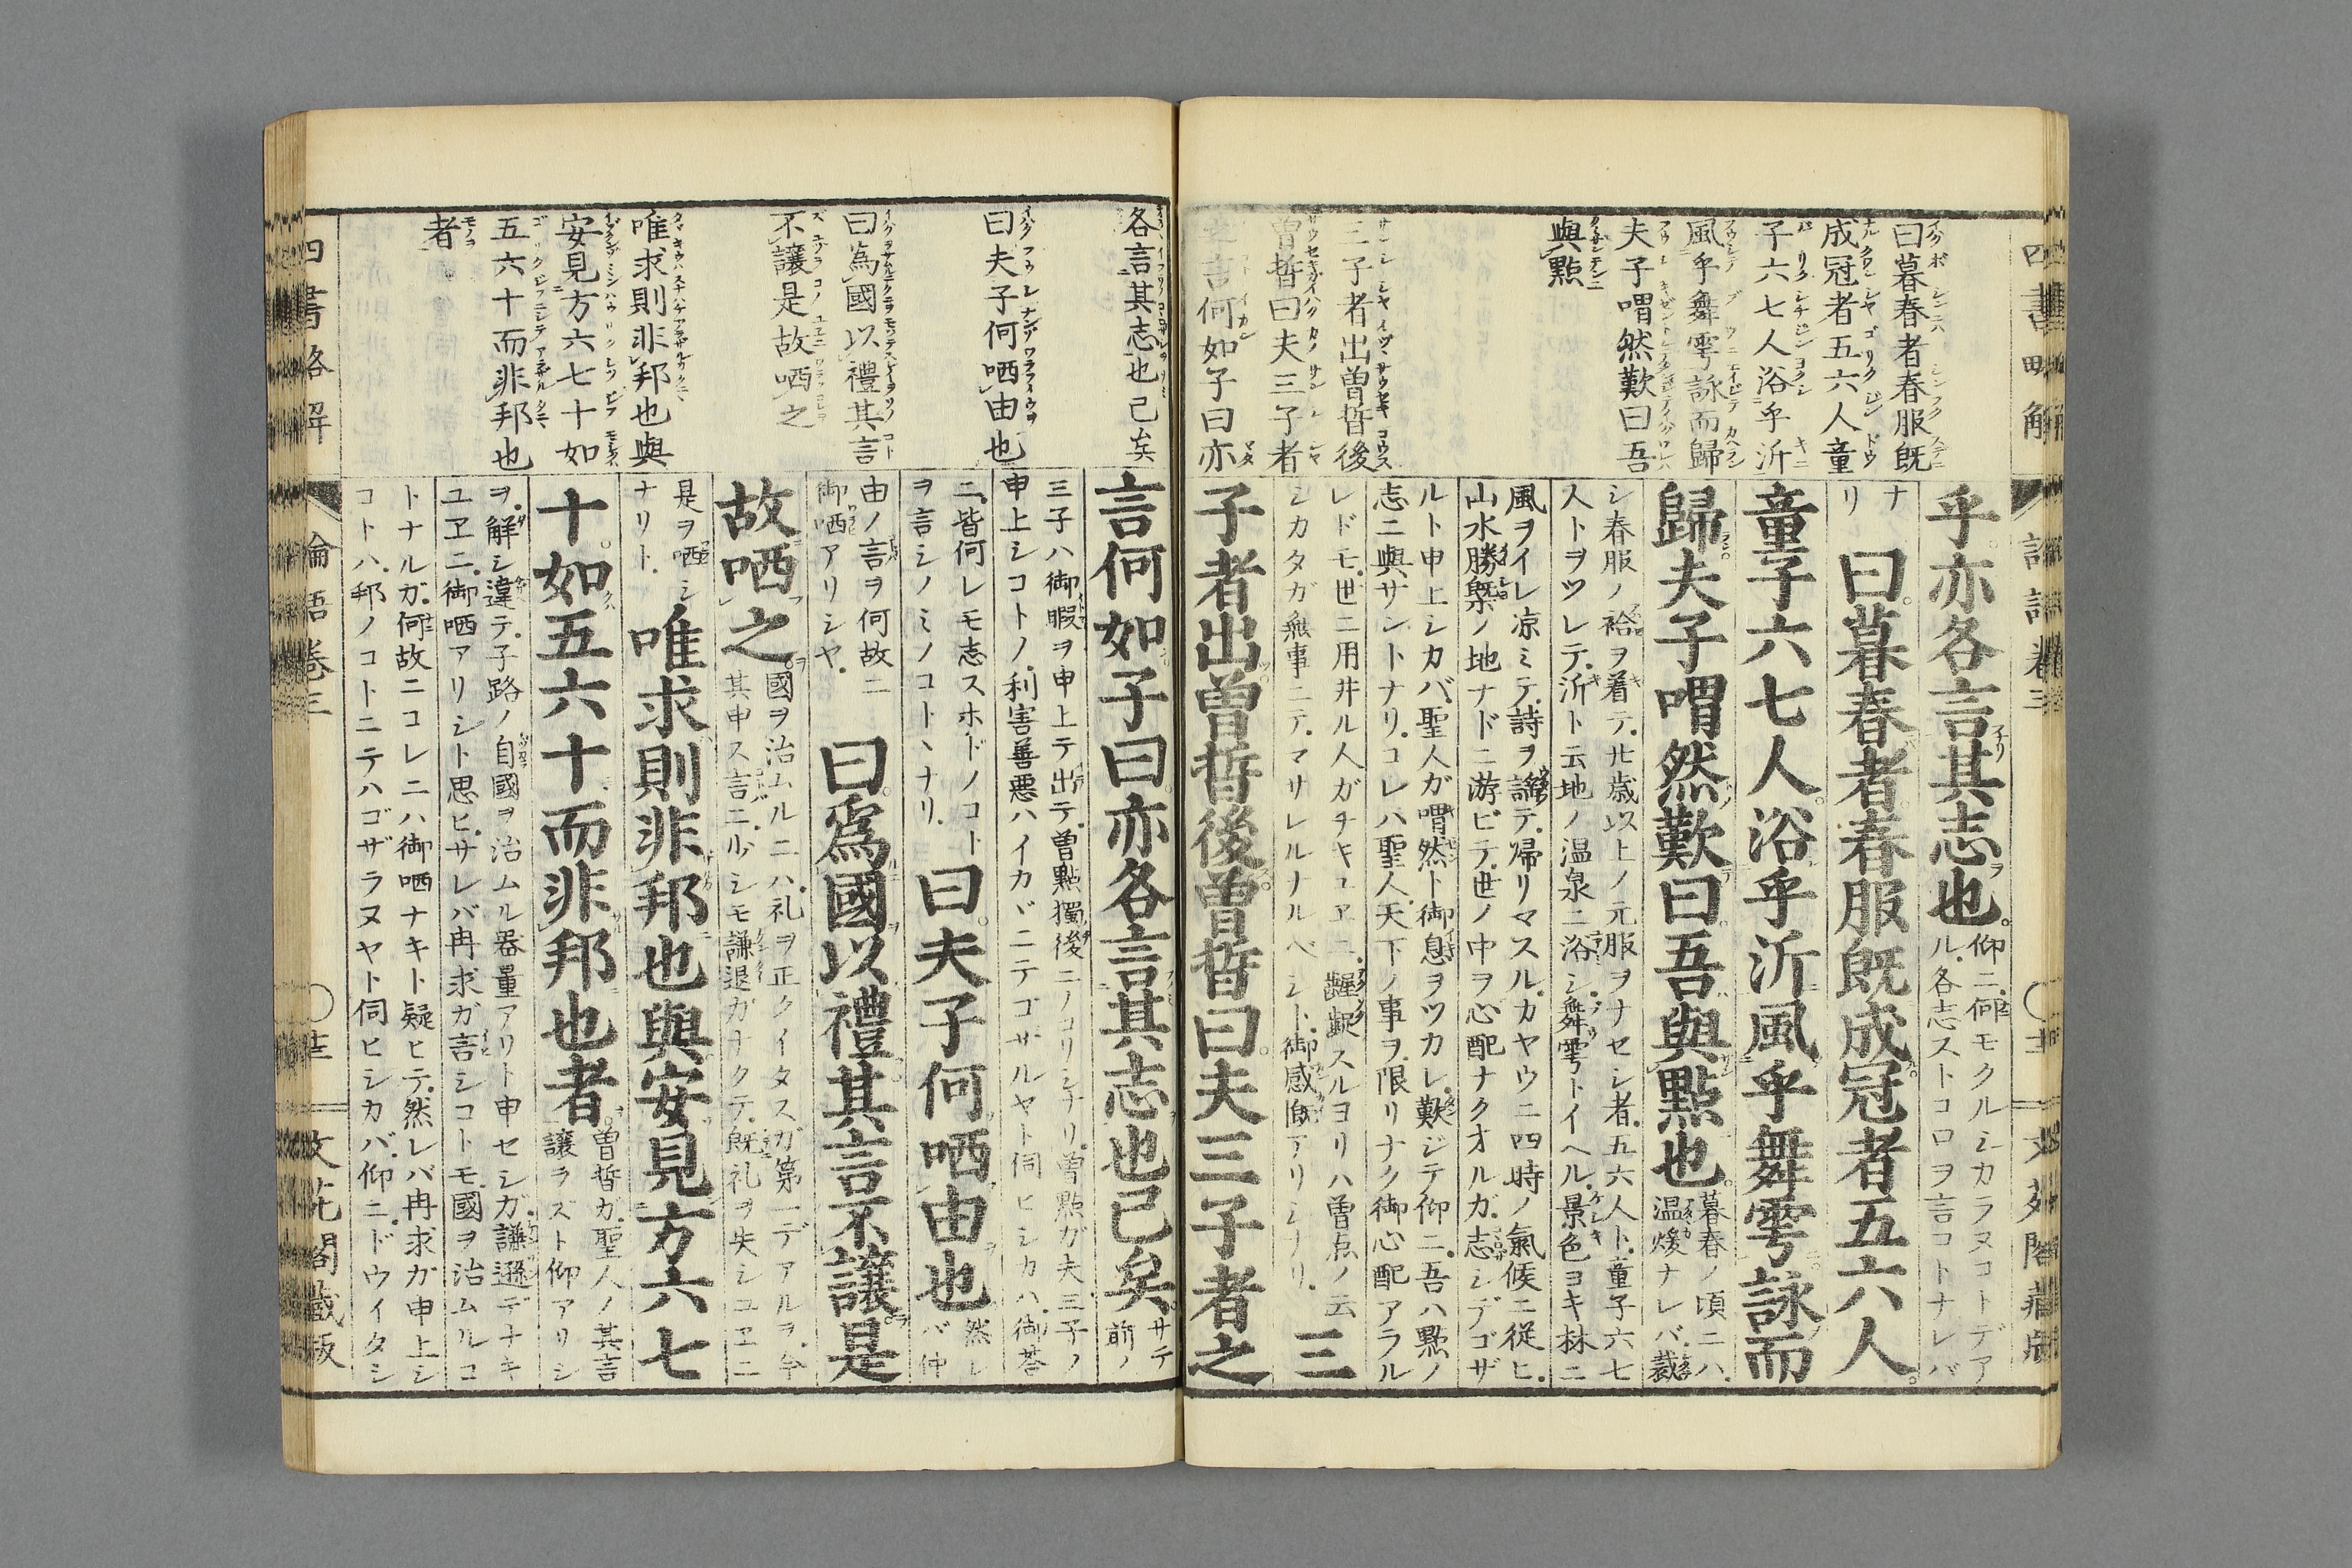 四書略解
曰暮春者春服既
成冠者五六人童
子六七人浴乎沂
風乎舞雩詠而歸
夫子喟然歎曰吾
與點
三子者出曽晳後
曽晳曰夫三子者
之言何如子曰亦
乎亦各言其志也
仰ニ何モクルシカラヌコトデア
ル各志ストコロヲ言コトナレバ
ナ
リ
曰暮春者春服既成冠者五六人
童子六七人浴乎沂風乎舞雩詠而
歸夫子喟然歎曰吾與點也
暮春ノ頃ニハ
温煖ナレバ裁
シ春服ノ袷ヲ着テ廿歳以上ノ元服ヲナセシ者五六人ト童子六七
人トヲツレテ沂ト云地ノ温泉ニ浴シ舞雩トイヘル景色ヨキ林ニ
風ヲイレ凉ミテ詩ヲ謡テ帰リマスルカヤウニ四時ノ氣候ニ従ヒ
山水勝槩ノ地ナドニ游ビテ世ノ中ヲ心配ナクオルガ志シデゴザ
ルト申上シカバ聖人ガ喟然ト御息ヲツカレ歎ジテ仰ニ吾ハ點ノ
志ニ與サントナリコレハ聖人天下ノ事ヲ限リナク御心配アラル
レドモ世ニ用井ル人ガナキユヱニ齷齪スルヨリハ曽点ノ云
シカタガ無事ニテマサレルナルベシト御感アリシナリ
三
子者出曽晳後曽晳曰夫三子者之
論語卷三
各言其志也已矣
曰夫子何哂由也
曰爲國以禮其言
不讓是故哂之
唯求則非邦也與
安見方六七十如
五六十而非邦也
者
言何如子曰亦各言其志也已矣
サテ
前ノ
三子ハ御暇ヲ申上テ出テ曽點獨後ニノコリシナリ曽點ガ夫三子ノ
申上シコトノ利害善悪ハイカヾニテゴザルヤト伺ヒシカハ御荅
ニ皆何レモ志スホドノコト
ヲ言シノミノコトヽナリ
曰夫子何哂由也
然レ
バ仲
由ノ言ヲ何故ニ
御哂アリシヤ
曰爲國以禮其言不讓是
故哂之
國ヲ治ムルニハ礼ヲ正クイタスガ第一デアルヲ今
其申ス言ニ少シモ謙退ガナクテ既礼ヲ失シユヱニ
是ヲ哂シ
ナリト
唯求則非邦也與安見方六七
十如五六十而非邦也者
曽晳ガ聖人ノ其言
讓ラズト仰アリシ
ヲ解シ違テ子路ノ自國ヲ治ムル器量アリト申セシガ謙遜デナキ
ユヱニ御哂アリシト思ヒサレバ冉求ガ言シコトモ國ヲ治ムルコ
トナルガ何故ニコレニハ御哂ナキト疑ヒテ然レバ冉求ガ申上シ
コトハ邦ノコトニテハゴザラヌヤト伺ヒシカバ仰ニドウイタシ
四書略解
論語卷三
文花閣藏版